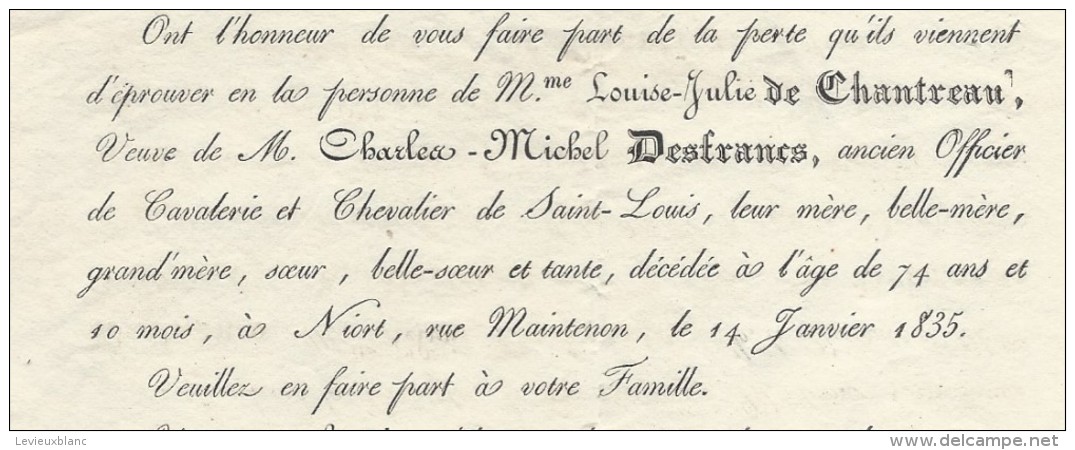 Ont l'honneur de vous faire part de la perte qu'ils viennent
d'éprouver en la personne de M.me Louise-Julie de Chantreau,
Veuve de M. Charles-Michel Desfrancs, ancien Officier
de Cavalerie et Chevalier de Saint-Louis, leur mère, belle-mère,
grand'mère, sœur, belle-sœur et tante, décédée à l'âge de 74 ans et
10 mois, à Niort, rue Maintenon, le 14 Janvier 1835.
Veuillez en faire part à votre Famille.
Levieuxblanc
delcampe.net